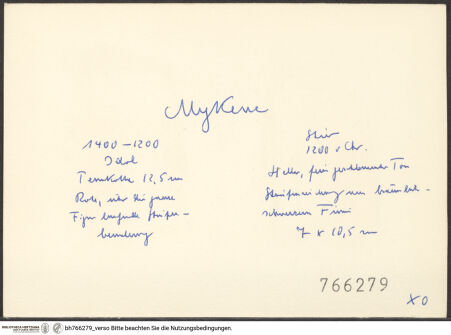 Mykene
1400–1200
Idol
Terrakotta 12,5 cm
Rote, über die ganze
Figur laufende Streifen-
bemalung
Stier
1200 v Chr.
Heller, fein geschlemmter Ton
Streifenzeichnung von bräunlich-
schwarzem Firnis
7 x 10,5 cm
766279
X0
BIBLIOTHECA HERTZIANA
bh766279_verso Bitte beachten Sie die Nutzungsbedingungen.